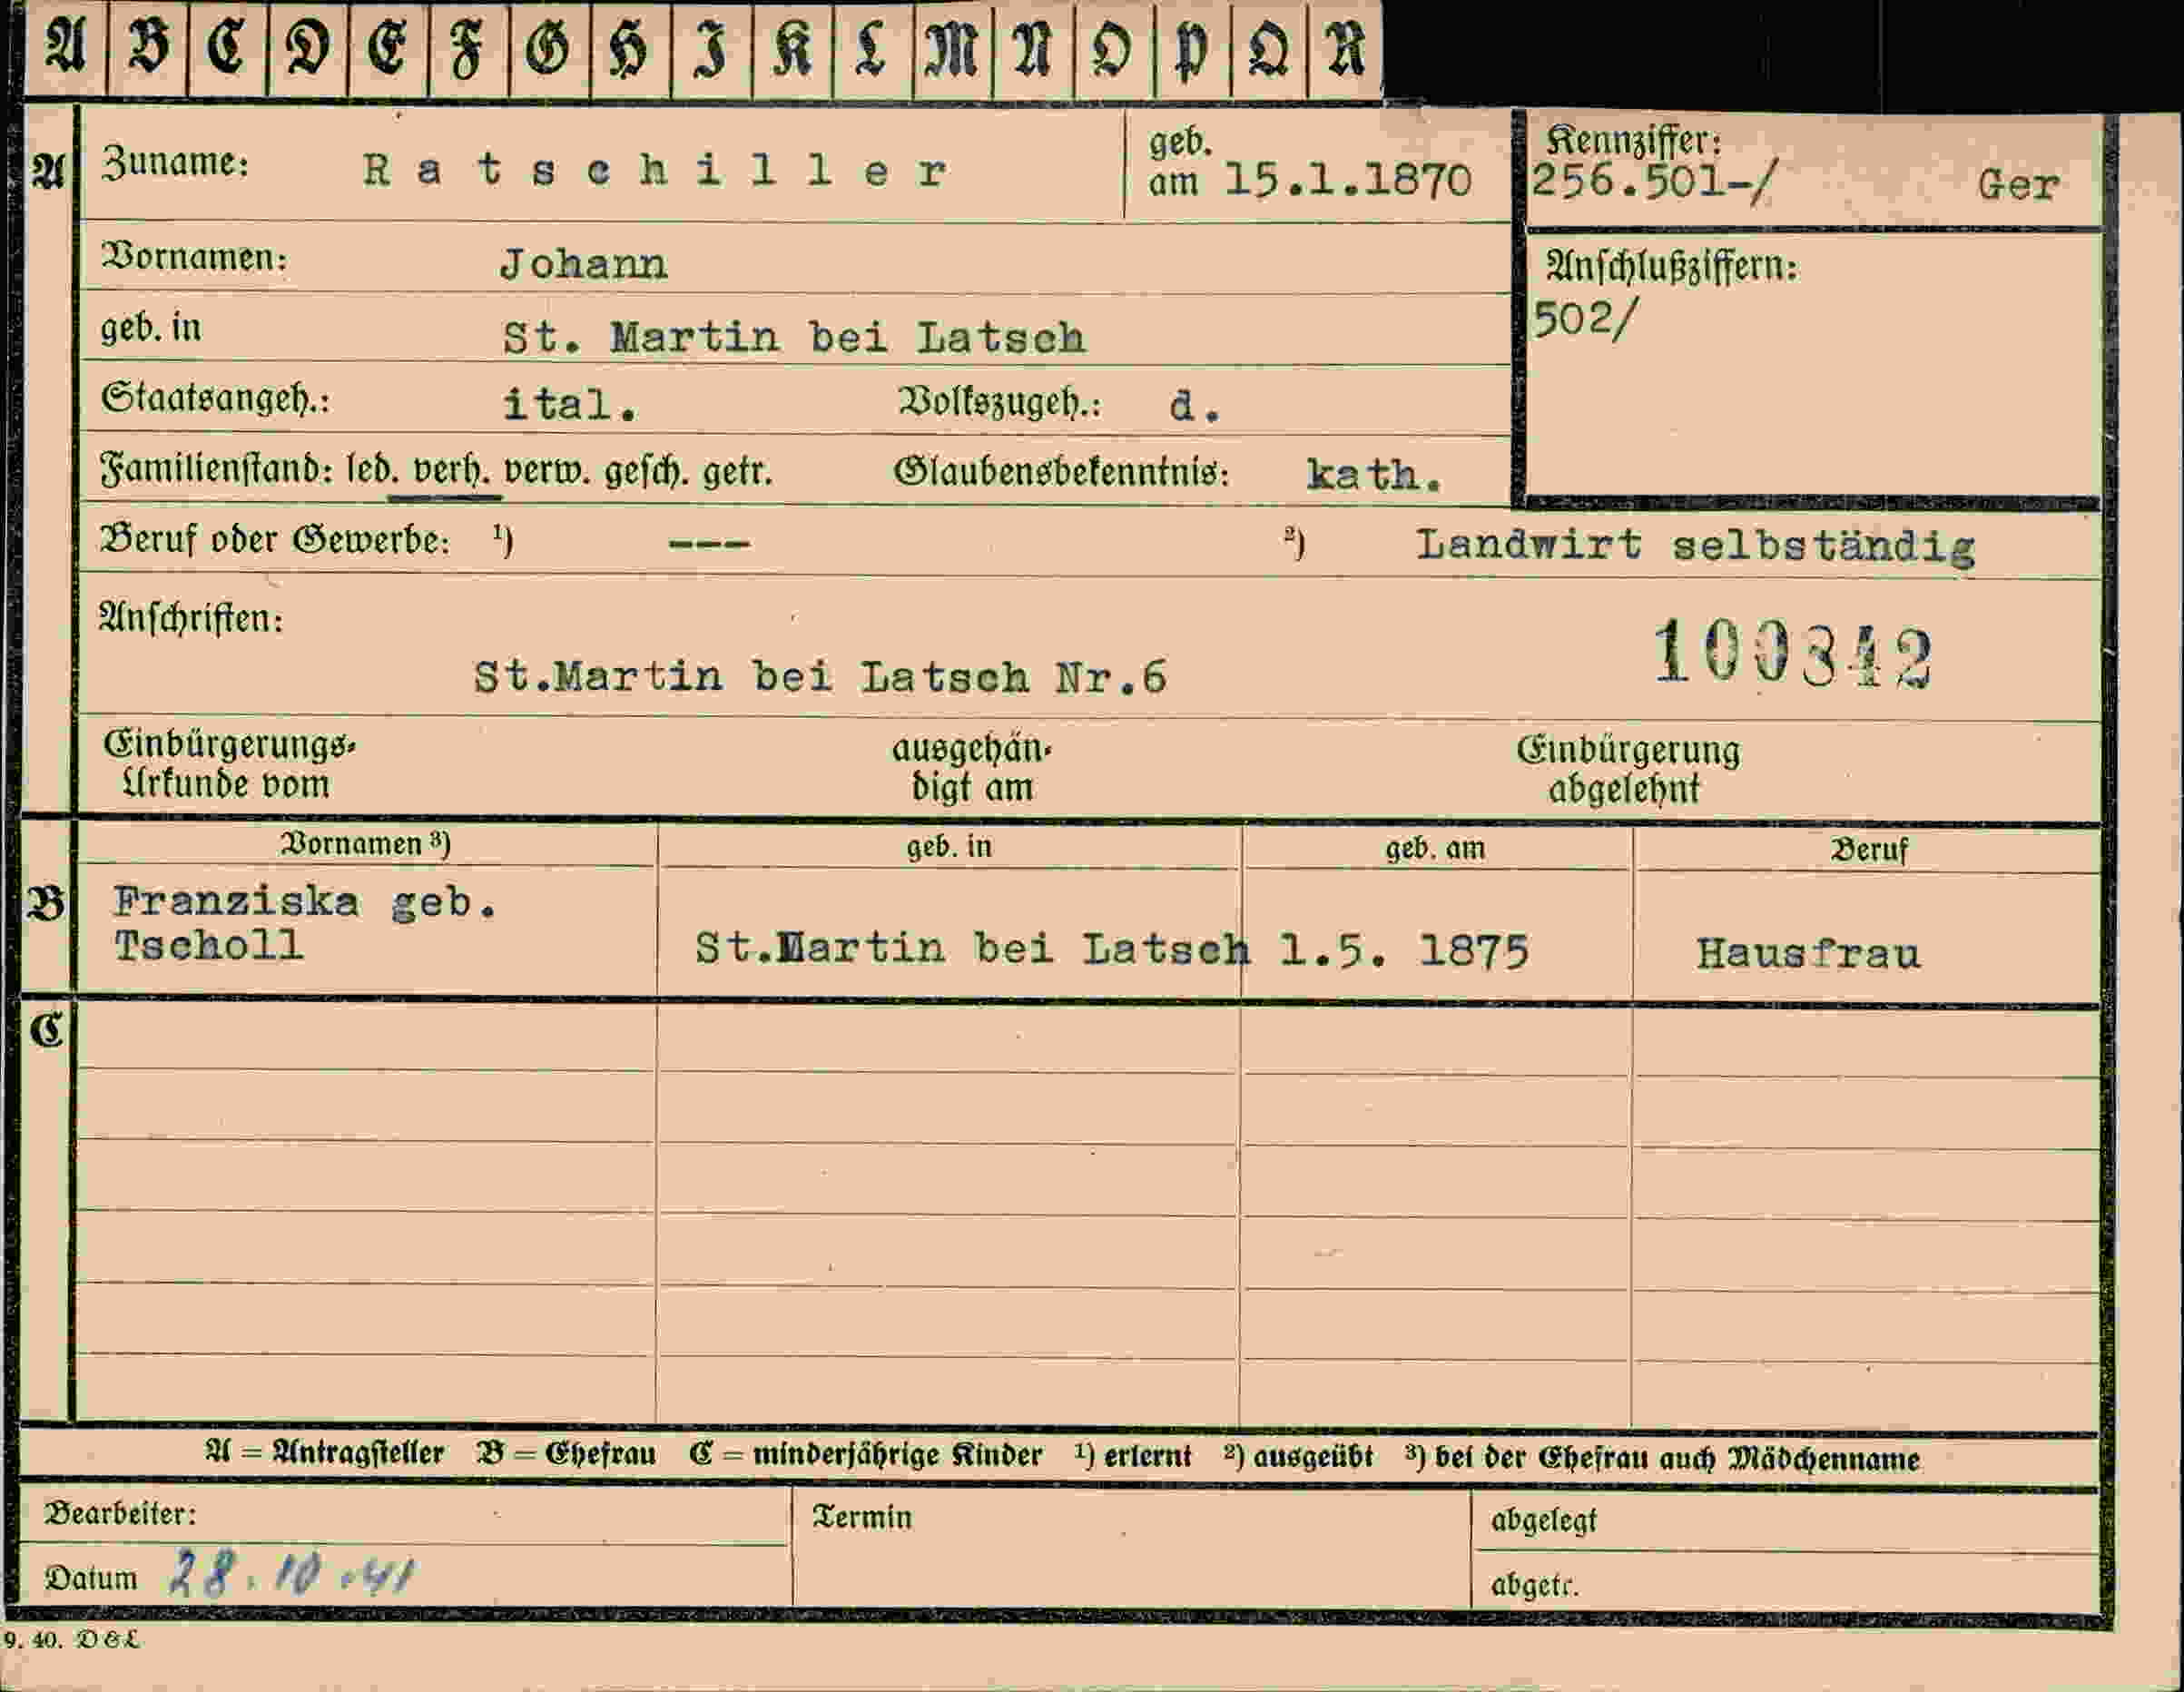 A B C D E F G H I K L M N O P Q R
A Zuname: Ratschiller geb. am 15.1.1870 Kennziffer: 256.501-/ Ger
Vornamen: Johann Anschlußziffern:
geb. in St. Martin bei Latsch 502/
Staatsangeh.: ital. Volkszugeh.: d.
Familienstand: led. verh. verw. gesch. getr. Glaubensbekenntnis: kath.
Beruf oder Gewerbe: ¹) --- ²) Landwirt selbständig
Anschriften:
St.Martin bei Latsch Nr.6 100342
Einbürgerungs- ausgehän- Einbürgerung
Urkunde vom digt am abgelehnt
Vornamen ³) geb. in geb. am Beruf
B Franziska geb.
Tscholl St.Martin bei Latsch 1.5. 1875 Hausfrau
C
A = Antragsteller B = Ehefrau C = minderjährige Kinder ¹) erlernt ²) ausgeübt ³) bei der Ehefrau auch Mädchenname
Bearbeiter: Termin abgelegt
Datum 28.10.41 abgetr.
9. 40. D&L